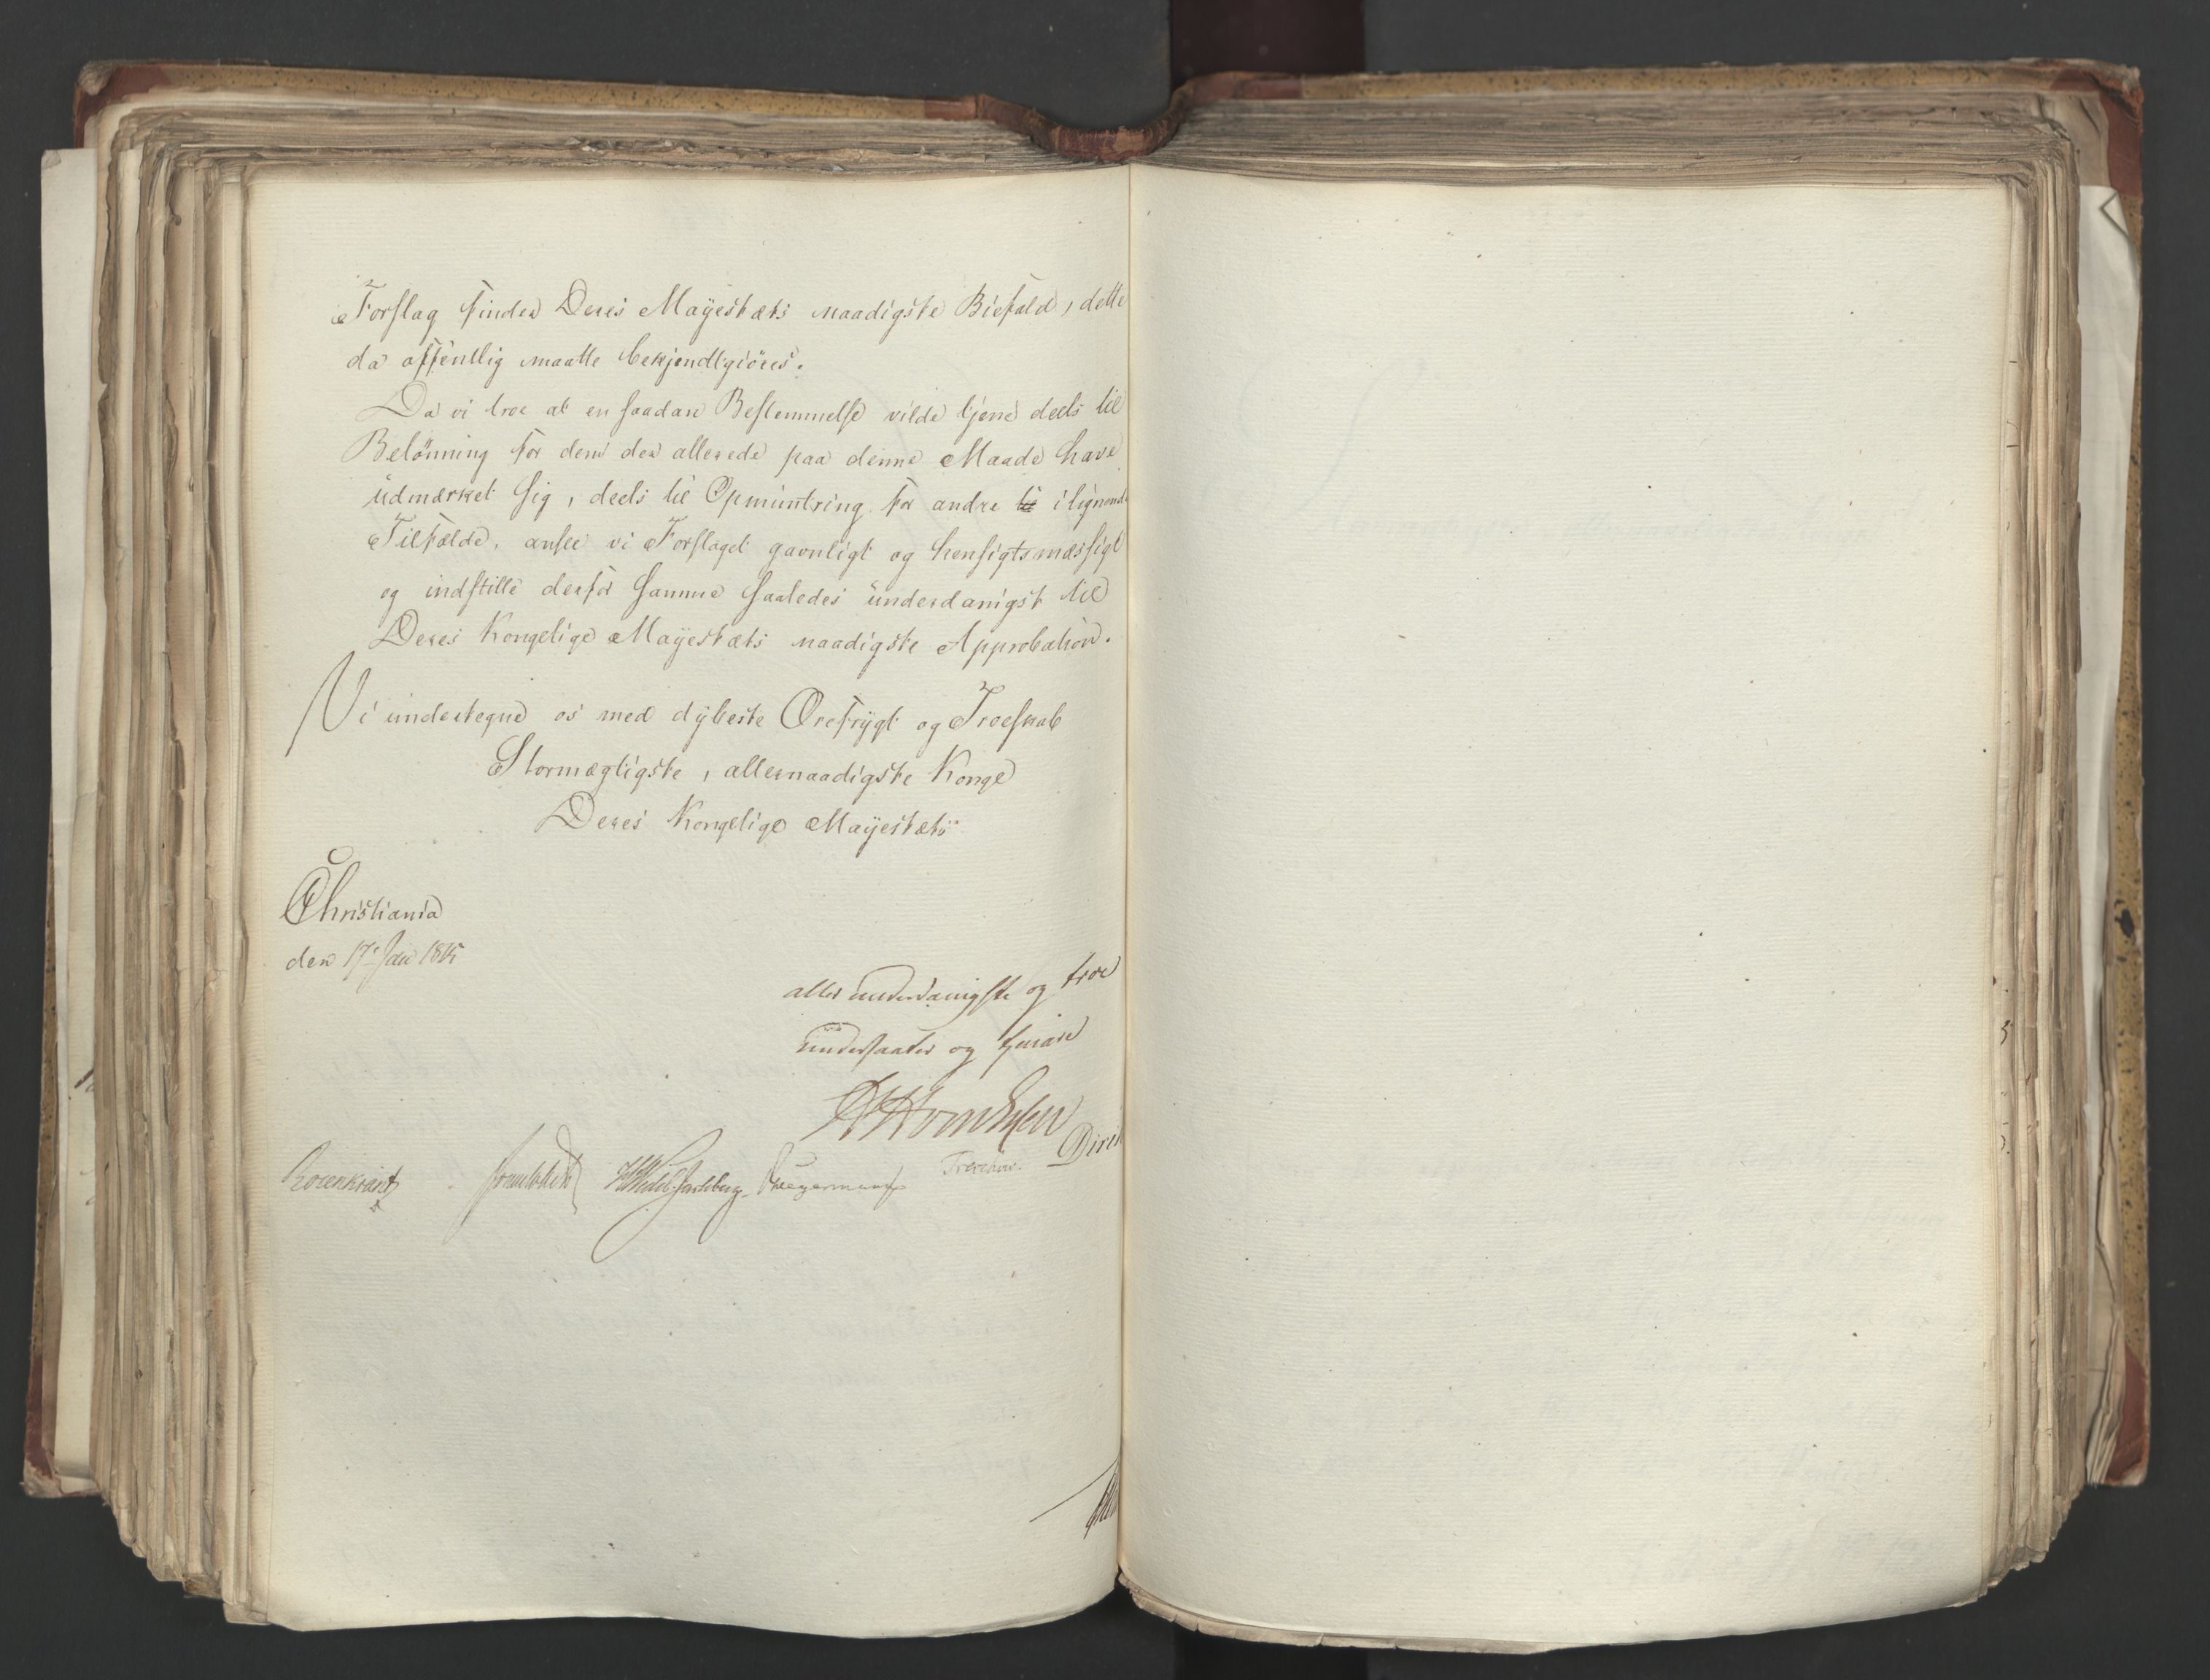 Forslag finder Deres Mayestæts naadigste Biefald, dette
da offentlig maatte bekjendtgiöres.
Da vi troe at en saadan Bestemmelse vilde tjene deels til
Belönning for dem der allerede paa denne Maade have
udmærket sig, deels til Opmuntring for andre i lignende
Tilfælde, ansee vi Forslaget gavnligt og hensigtsmæssigt
og indstille derfor samme saaledes underdanigst til
Deres Kongelige Mayestæts naadigste Approbation.
Vi undertegne os med dybeste Ærefrygt og Troeskab
Stormægtigste, allernaadigste Konge
Deres Kongelige Mayestæts
Christiania
den 17 1815
aller underdanigste og troe
undersaatter og tjenere
Rosenkrantz Sommerhielm HWedel Jarlsberg Treschow